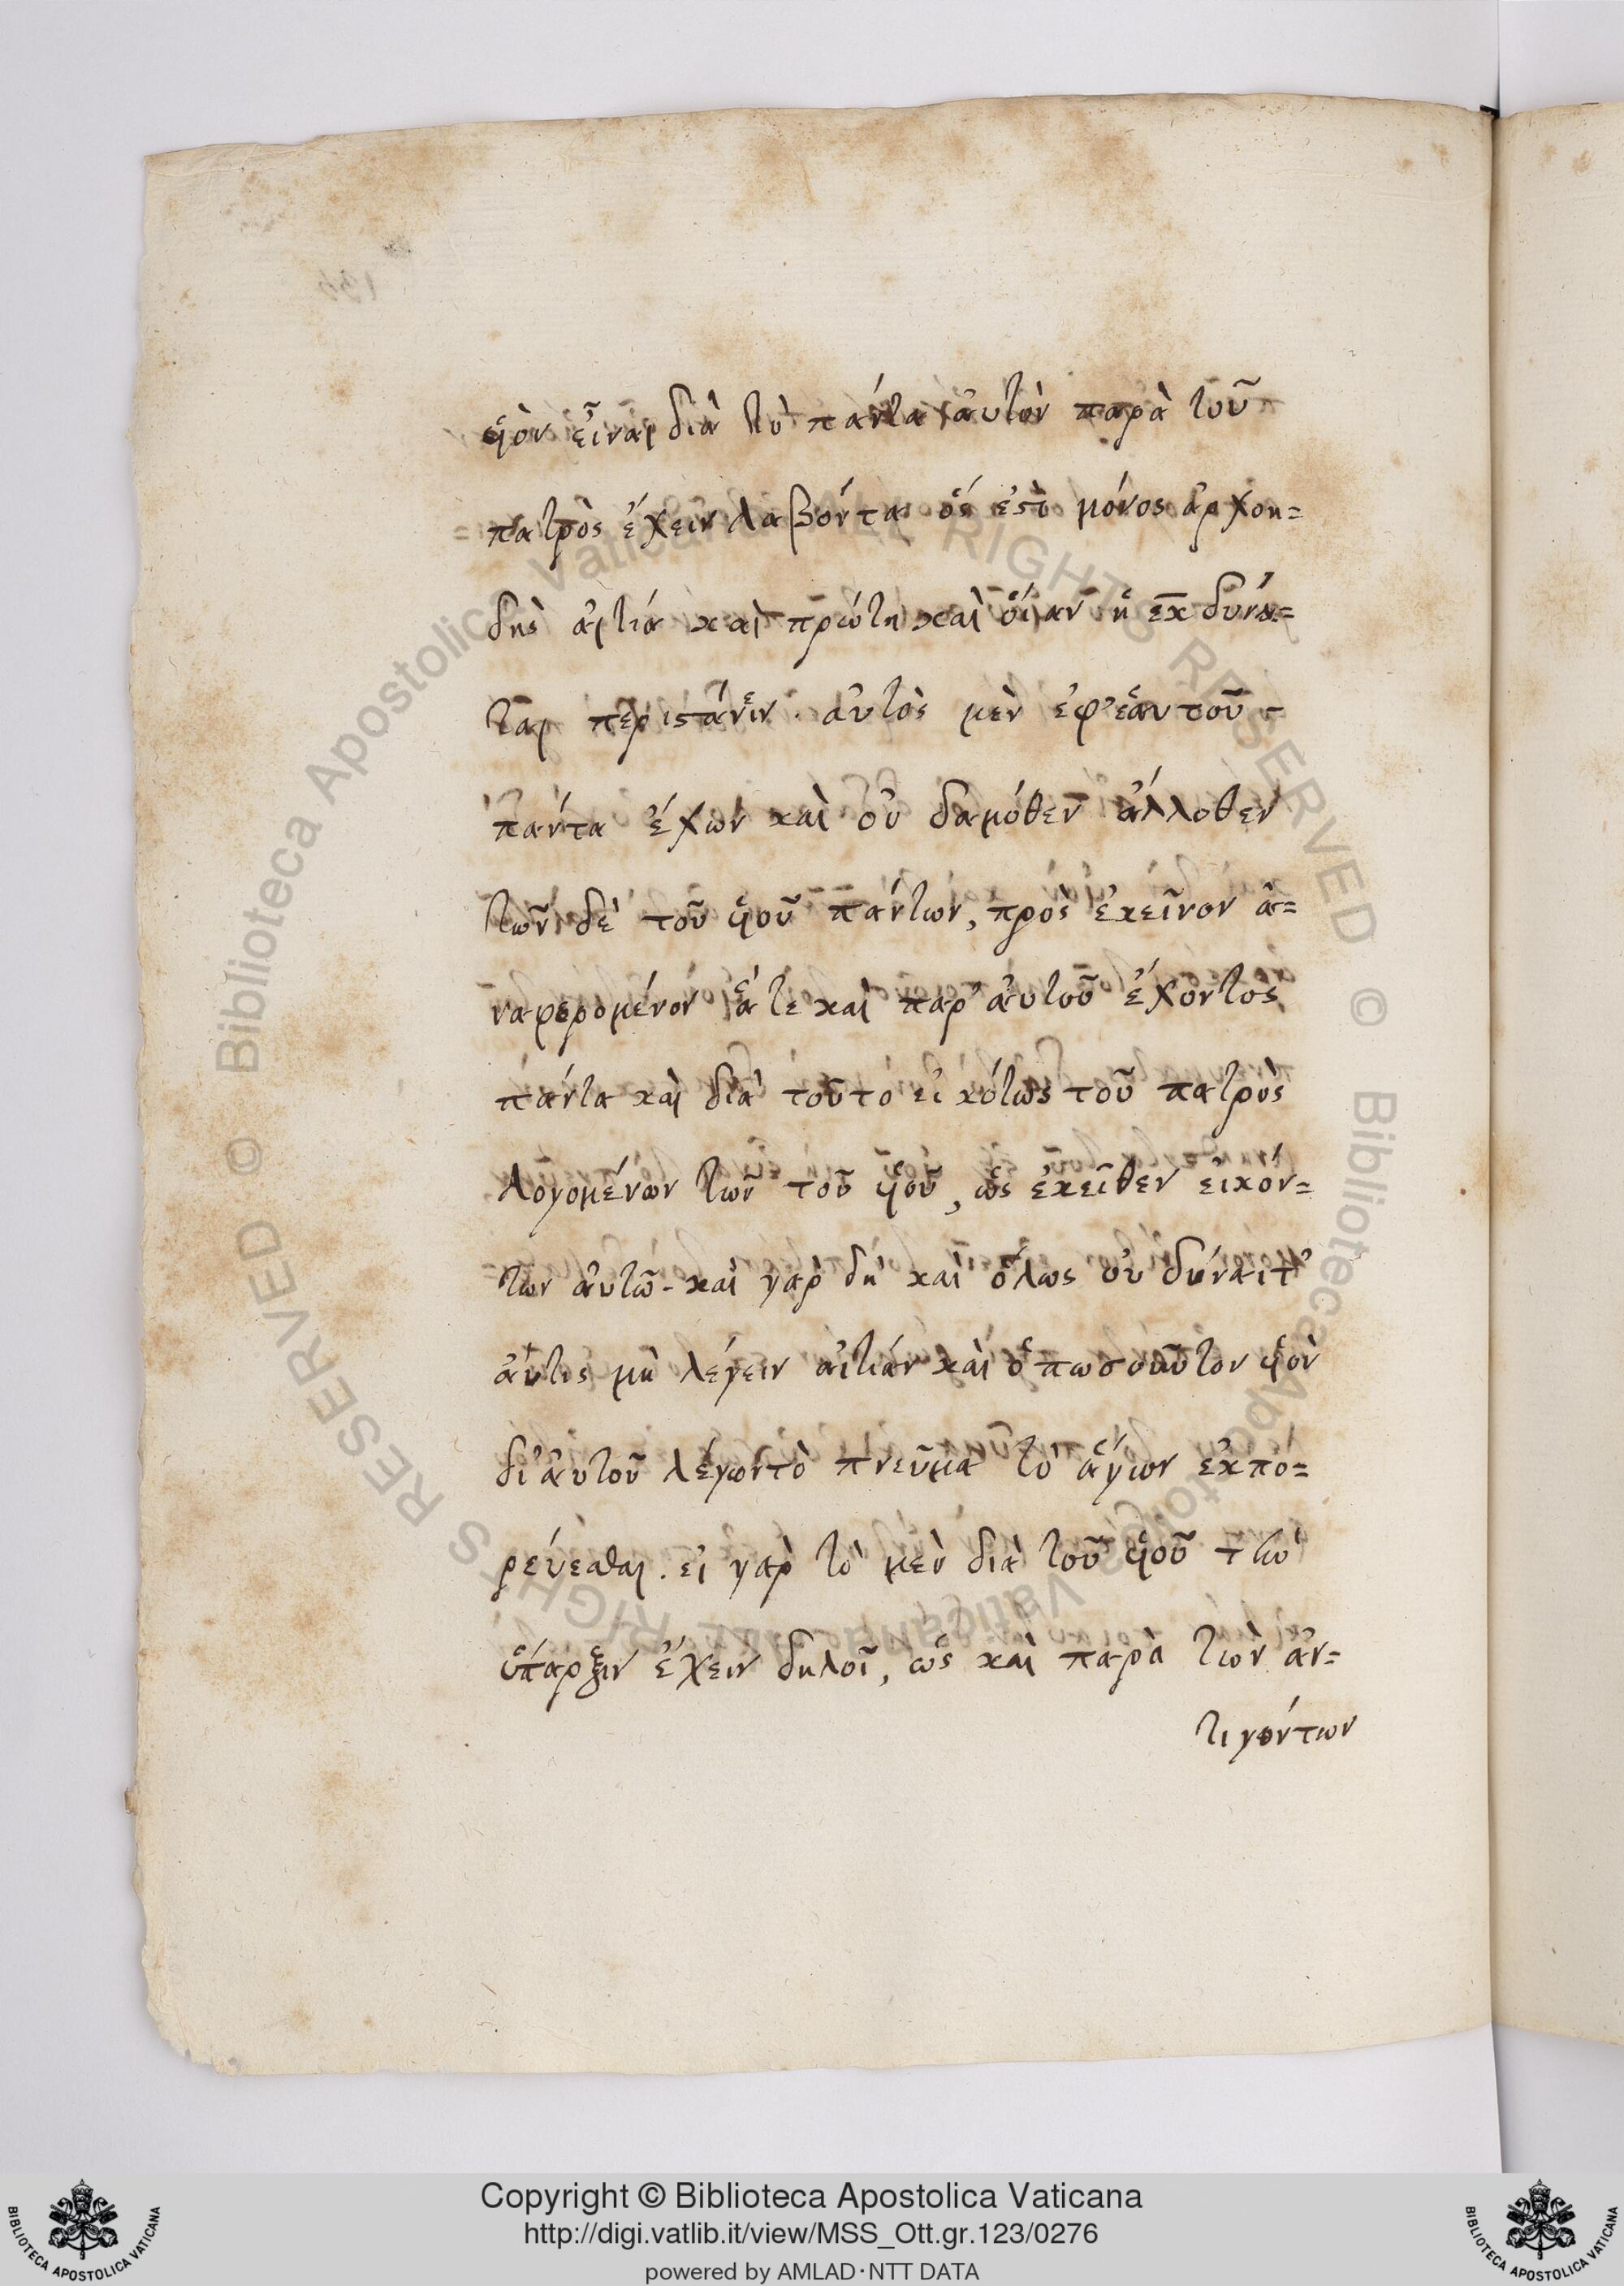 ϋὸν εἶναι διὰ τὸ πάντα αὐτὸν παρὰ τοῦ
πατρὸς ἔχειν λαβόντα ὅς ἐστὶ μόνος ἀρχοη=
δὴς αἰτία καὶ πρώτη καὶ οἵαν ἡ ἐκ δυνά=
ται περιστάνειν. αὐτὸς μὲν ἐφ' ἑαυτοῦ
πάντα ἔχων καὶ οὐ δαμόθεν ἄλλοθεν
τῶν δὲ τοῦ ϋοῦ πάντων, πρὸς ἐκεῖνον ἀ=
ναφερομένον ἅτε καὶ παρ' αὐτοῦ ἔχοντος
πάντα καὶ διὰ τοῦτο εἰκότως τοῦ πατρὸς
λογομένων τῶν τοῦ ϋοῦ, ὡς ἐκεῖθεν εικόν=
των αὐτῶ. καὶ γαρ δὴ καὶ ὅλως οὐ δύναιτ'
ἄντις μὴ λέγειν αἰτίαν καὶ ὁπωσοῦντον ϋὸν
δι' αὐτοῦ λέγων τὸ πνεῦμα τὸ ἅγιον ἐκπο=
ρεύεσθαι. εἰ γαρ τὸ μὲν διὰ τοῦ ϋοῦ τὴν
ὕπαρξιν ἔχειν δηλοῖ, ὡς καὶ παρὰ τῶν ἀν=
τιγόντων
Copyright © Biblioteca Apostolica Vaticana
http://digi.vatlib.it/view/MSS_Ott.gr.123/0276
powered by AMLAD·NTT DATA
BIBLIOTECA APOSTOLICA VATICANA
BIBLIOTECA APOSTOLICA VATICANA
© Biblioteca Apostolica Vaticana ALL RIGHTS RESERVED
© Biblioteca Apostolica Vaticana ALL RIGHTS RESERVED